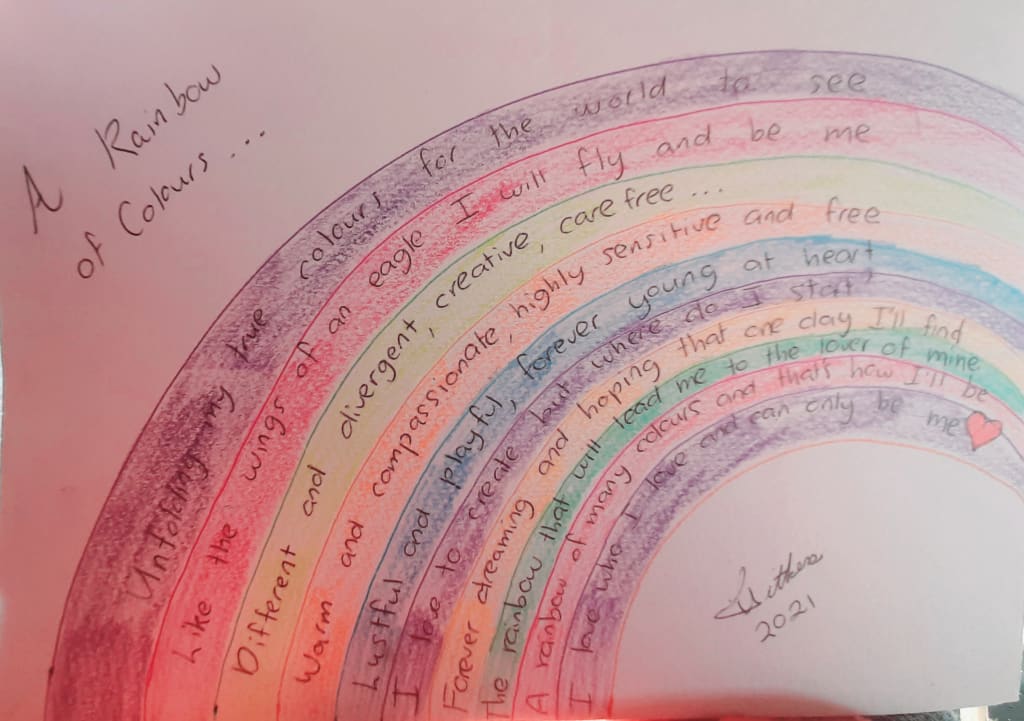 A Rainbow
of Colours...
Unfolding my true colours for the world to see
Like the wings of an eagle I will fly and be me
Different and divergent, creative, care free...
Warm and compassionate, highly sensitive and free
Lustful and playful, forever young at heart
I love to create but where do I start,
Forever dreaming and hoping that one day I'll find
The rainbow that will lead me to the lover of mine
A rainbow of many colours and that's how I'll be
I love who I love and can only be me
2021